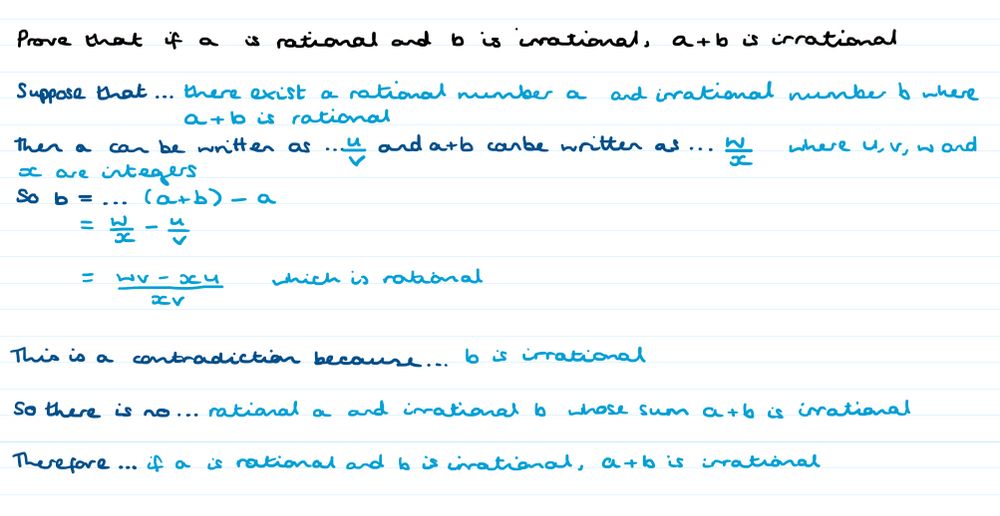 Prove that if a is rational and b is irrational, a+b is irrational
Suppose that... there exist a rational number a and irrational number b where
a+b is rational
Then a can be written as ... u/v and a+b can be written as ... w/x where u, v, w and
x are integers
So b = ... (a+b) - a
= w/x - u/v
= (wv - xu)/xv which is rational
This is a contradiction because... b is irrational
So there is no... rational a and irrational b whose sum a+b is irrational
Therefore... if a is rational and b is irrational, a+b is irrational